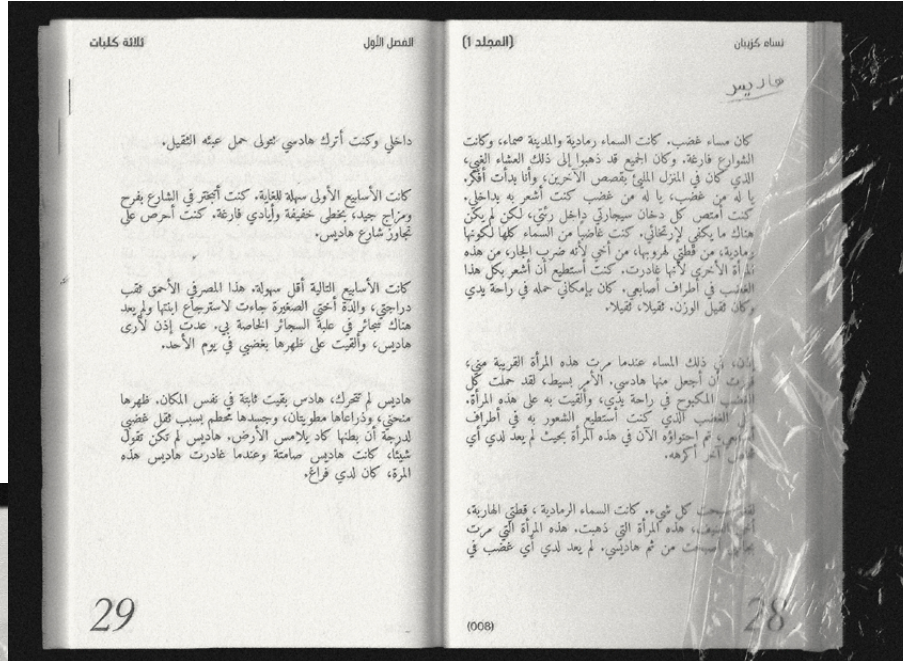 نساء كزيبان
(المجلد 1)
هاديس
كان مساء غضب. كانت السماء رمادية والمدينة صماء، وكانت
الشوارع فارغة. وكان الجميع قد ذهبوا إلى ذلك العشاء الغبي،
الذي كان في المنزل المليئ بقصص الآخرين، وأنا بدأت أفكر.
يا له من غضب، يا له من غضب كنت أشعر به بداخلي.
كنت أمتص كل دخان سيجارتي داخل رئتي، لكن لم يكن
هناك ما يكفي لإرتخائي. كنت غاضبا من السماء كلها لكونها
رمادية، من قطتي لهروبها، من أخي لأنه ضرب الجار، من هذه
المرأة الأخرى لأنها غادرت. كنت أستطيع أن أشعر بكل هذا
الغضب في أطراف أصابعي. كان بإمكاني حمله في راحة يدي
وكان ثقيل الوزن. ثقيلا، ثقيلا.
إذن، في ذلك المساء عندما مرت هذه المرأة القريبة مني،
قررت أن أجعل منها هادسي. الأمر بسيط، لقد حملت كل
الغضب المكبوح في راحة يدي، وألقيت به على هذه المرأة.
كل الغضب الذي كنت أستطيع الشعور به في أطراف
أصابعي، تم احتواؤه الآن في هذه المرأة بحيث لم يعد لدي أي
شخص آخر أكرهه.
لقد كل شيء. كانت السماء الرمادية ، قطتي الهاربة،
أخي العنيف، هذه المرأة التي ذهبت. هذه المرأة التي مرت
بجانبي أصبحت من ثم هاديسي. لم يعد لدي أي غضب في
(008)
28
الفصل الأول
ثلاثة كلبات
داخلي وكنت أترك هادسي تتولى حمل عبئه الثقيل.
كانت الأسابيع الأولى سهلة للغاية. كنت أتبختر في الشارع بفرح
ومزاج جيد، بخطى خفيفة وأيادي فارغة. كنت أحرص على
تجاوز شارع هاديس.
كانت الأسابيع التالية أقل سهولة. هذا المصرفي الأحمق ثقب
دراجتي، والدة أختي الصغيرة جاءت لاسترجاع ابنتها ولم يعد
هناك سجائر في علبة السجائر الخاصة بي. عدت إذن لأرى
هاديس، وألقيت على ظهرها بغضبي في يوم الأحد.
هاديس لم تتحرك، هادس بقيت ثابتة في نفس المكان. ظهرها
منحني، وذراعاها مطويتان، وجسدها محطم بسبب ثقل غضبي
لدرجة أن بطنها كاد يلامس الأرض. هاديس لم تكن تقول
شيئا، كانت هاديس صامتة وعندما غادرت هاديس هذه
المرة، كان لدي فراغ.
29